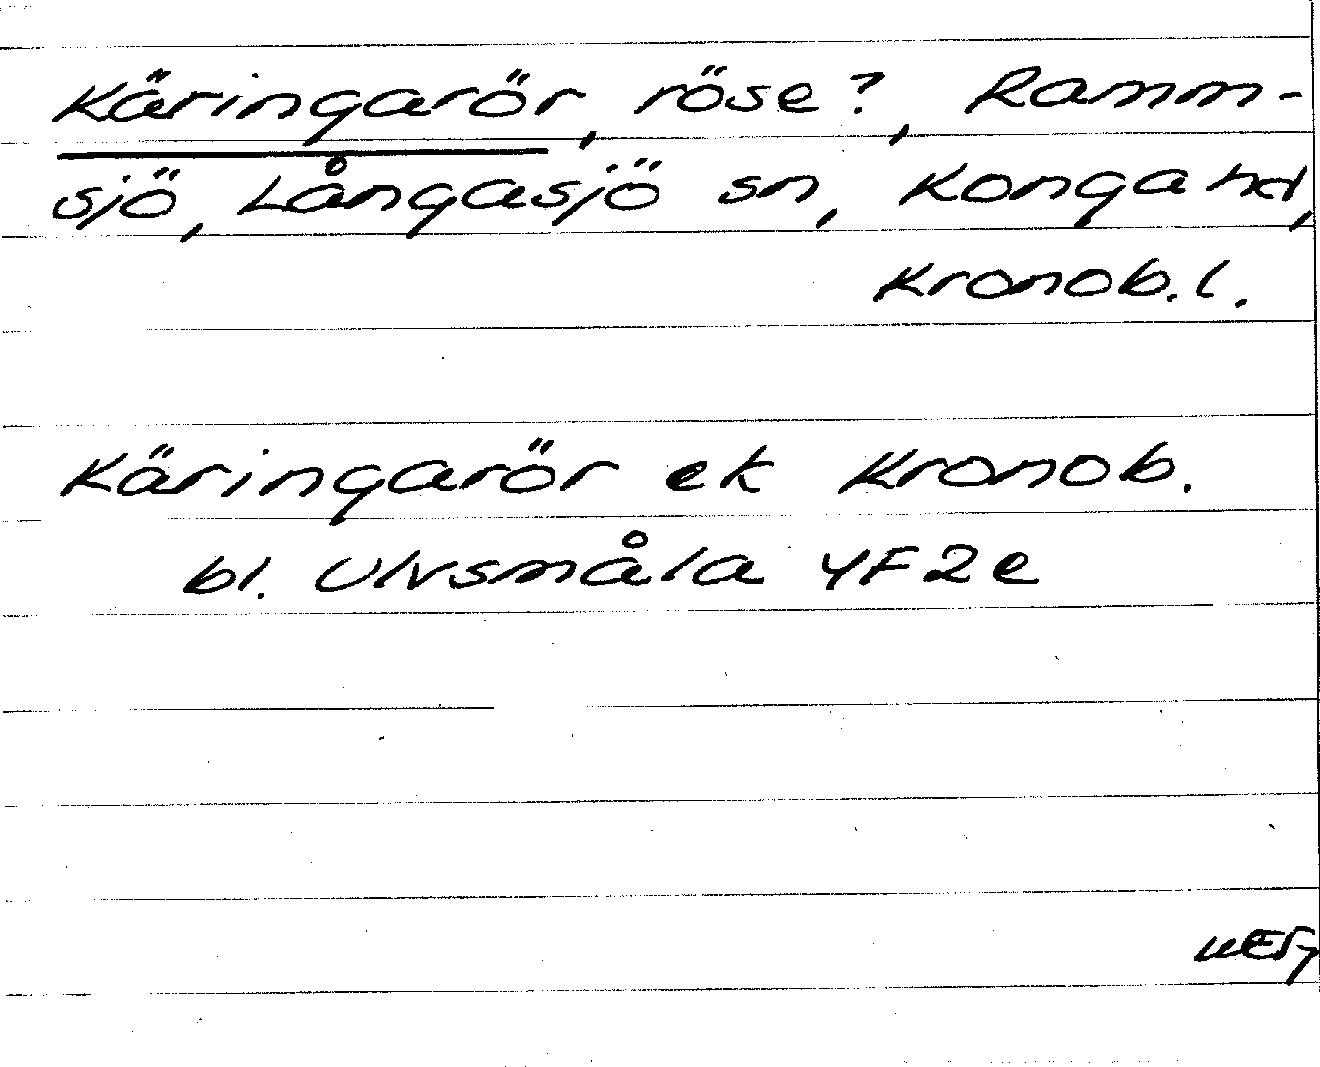 Käringarör, röse?, Ramm-
sjö, Långasjö sn, Konga hd,
Kronob.l.
Käringarör ek Kronob.
bl. Ulvsmåla 4F2e